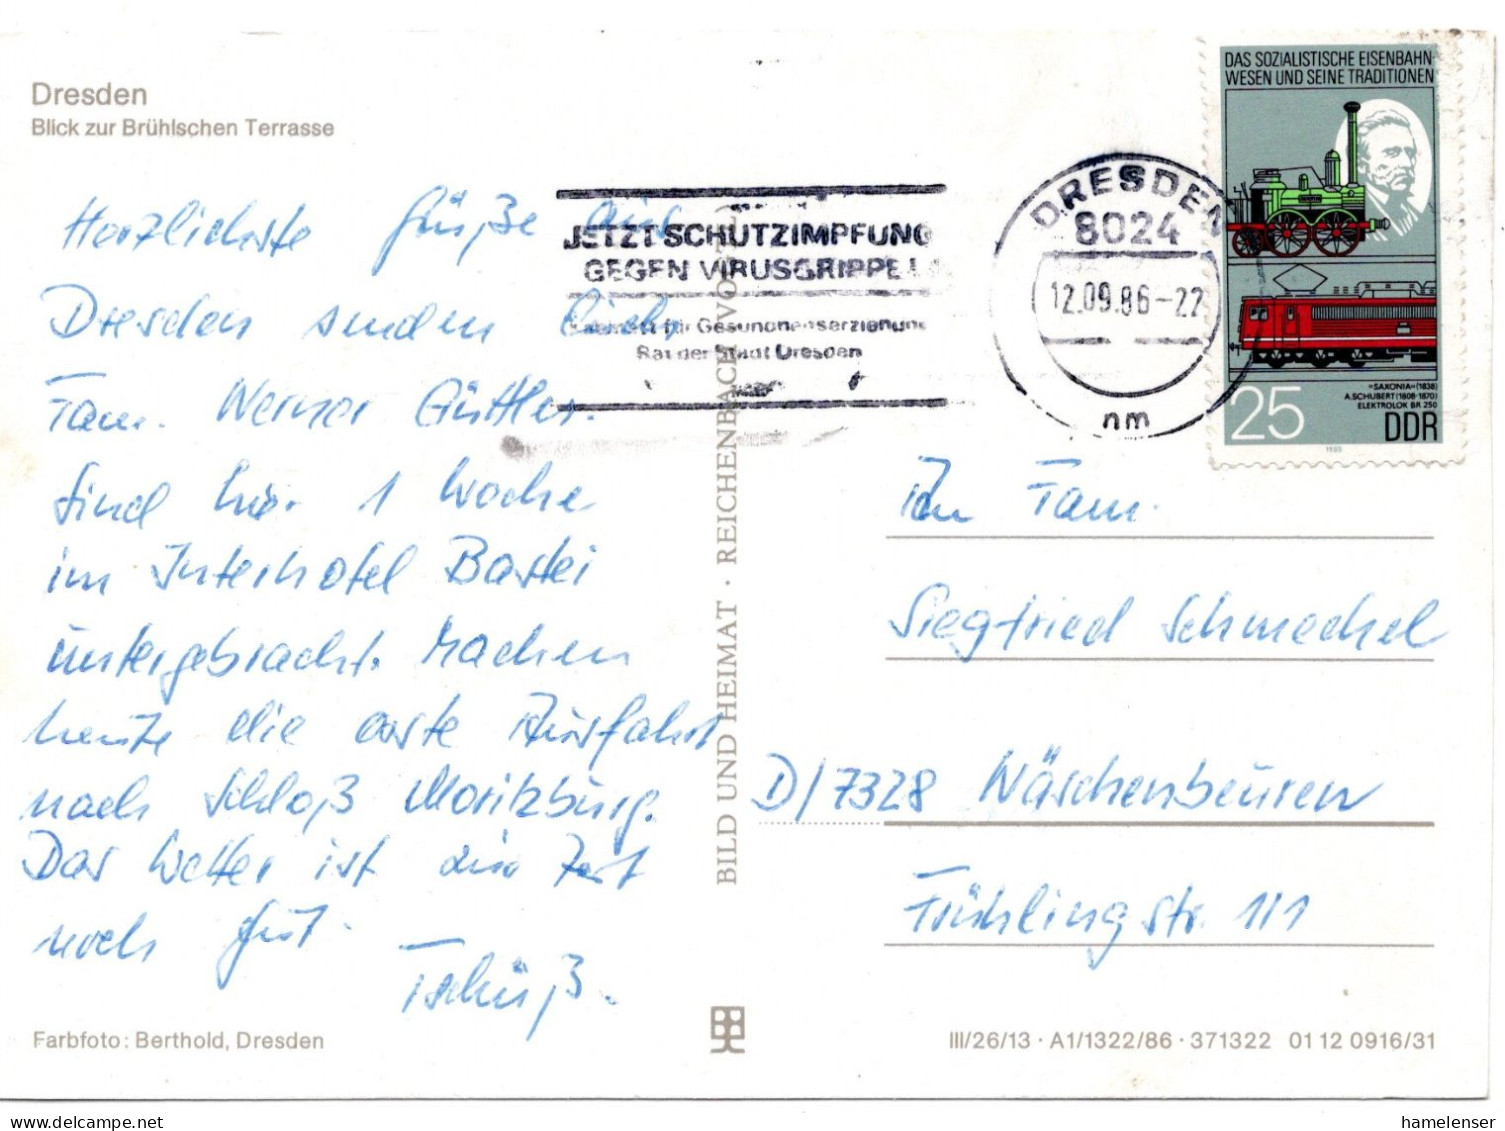 Dresden
Blick zur Brühlschen Terrasse
Herzlichste Grüße aus
Dresden senden Euch
Fam. Werner Güttler.
Sind hier 1 Woche
im Interhotel Bastei
untergebracht. Machen
heute die erste Ausfahrt
nach Schloß Moritzburg.
Das Wetter ist zur Zeit
noch gut.
Tschüß.
Farbfoto: Berthold, Dresden
BILD UND HEIMAT · REICHENBACH (VOGTL)
JETZT SCHUTZIMPFUNG
GEGEN VIRUSGRIPPE!
für Gesundheitserziehung
Rat der Stadt Dresden
DRESDEN
8024
12.09.86-22
nm
DAS SOZIALISTISCHE EISENBAHN-
WESEN UND SEINE TRADITIONEN
»SAXONIA« (1838)
A.SCHUBERT (1808-1870)
ELEKTROLOK BR 250
25 DDR
1985
An Fam.
Siegfried Schmechel
D/7328 Wäschenbeuren
Frühlingstr. 111
III/26/13 · A1/1322/86 · 371322 01 12 0916/31
hamelenser